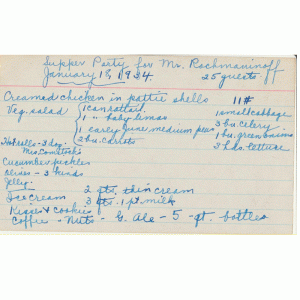 Supper Party for Mr. Rachmaninoff
January 18, 1934. 25 guests
Creamed chicken in pattie shells 11#
Veg. salad 1 can
1 " baby limas 1 small cabbage
1 early June medium peas 3 bu. celery
2 bu. carrots 1 bu. green onions
Hot rolls - 3 doz. 3 hds. lettuce
Mrs. Comstock's
Cucumber pickles
Olives - 3 kinds
Jelly
Ice Cream 2 qts. thin cream
Kisses & Cookies 3 pts. 1 pt. milk
Coffee - Nuts - G. Ale - 5 - qt. bottles